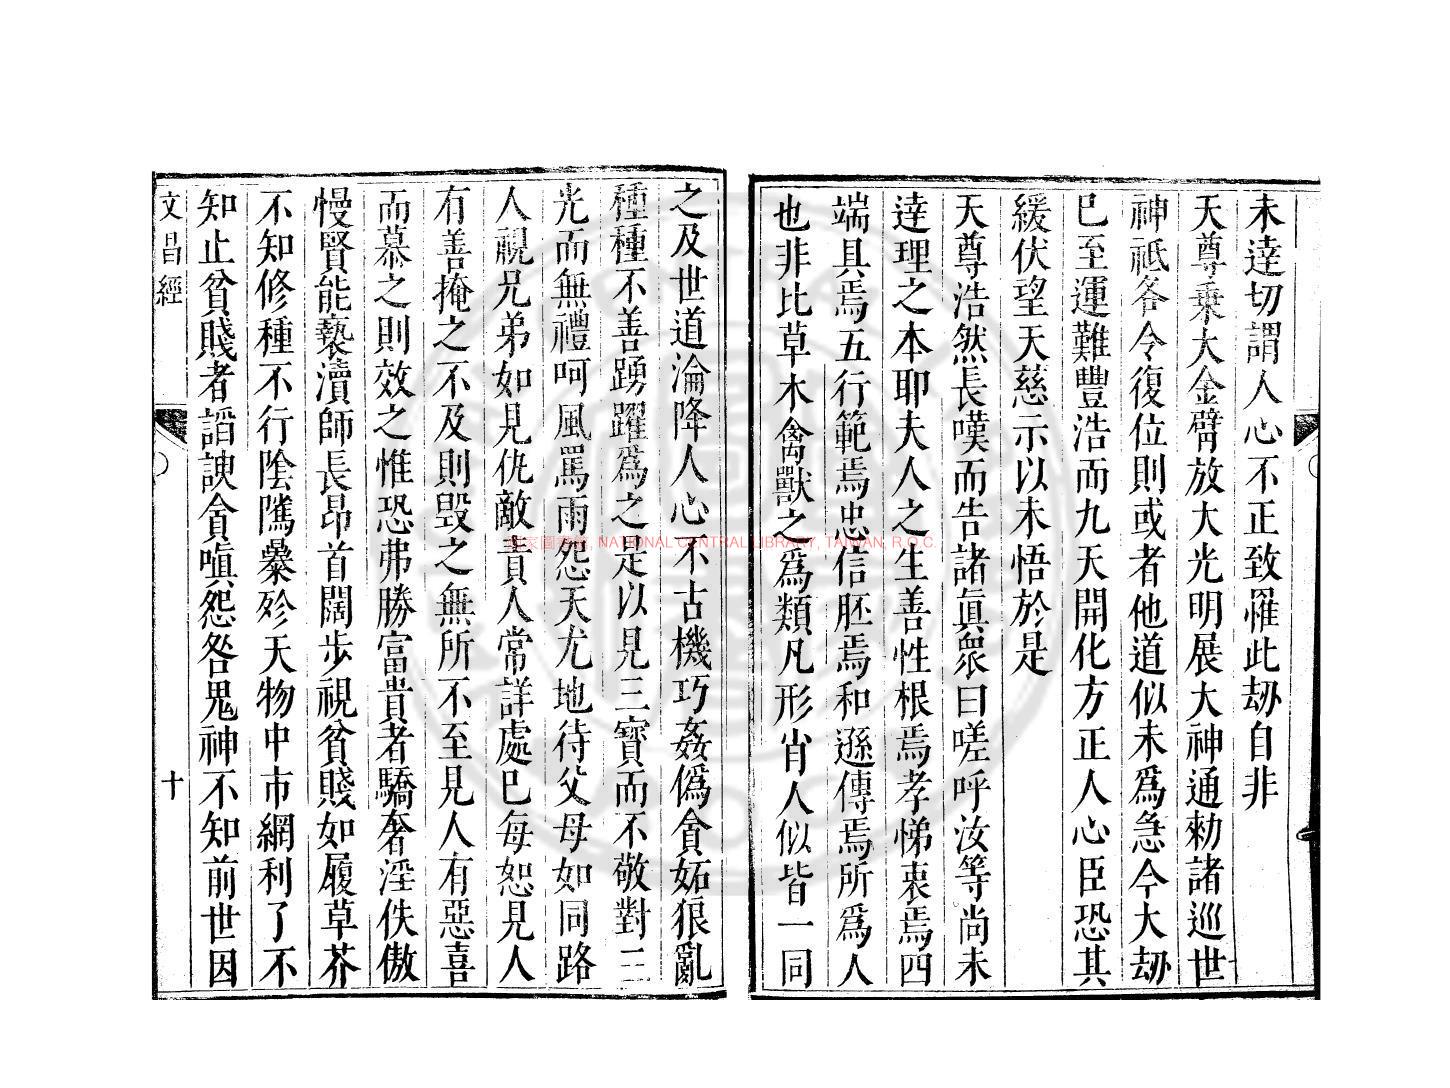 未達切謂人心不正致罹此刼自非
天尊乗大金臂放大光明展大神通勅諸巡世
神祇各令復位則或者他道似未爲急今大刼
已至運難豐浩而九天開化方正人心臣恐其
緩伏望天慈示以未悟於是
天尊浩然長嘆而告諸眞衆曰嗟呼汝等尚未
達理之本耶夫人之生善性根焉孝悌衷焉四
端具焉五行範焉忠信胚焉和遜傳焉所爲人
也非比草木禽獸之爲類凡形肖人似皆一同
之及世道淪降人心不古機巧姦僞貪妬狠亂
種種不善踴躍爲之是以見三寳而不敬對三
光而無禮呵風罵雨怨天尤地待父母如同路
人視兄弟如見仇敵責人常詳處已每恕見人
有善掩之不及則毀之無所不至見人有惡喜
而慕之則效之惟恐弗勝富貴者驕奢淫佚傲
慢賢能褻瀆師長昂首闊步視貧賤如履草芥
不知修種不行陰隲暴殄天物中市網利了不
知止貧賤者謟諛貪嗔怨咎鬼神不知前世因
文昌經
十
國家圖書館, NATIONAL CENTRAL LIBRARY, TAIWAN, R.O.C.